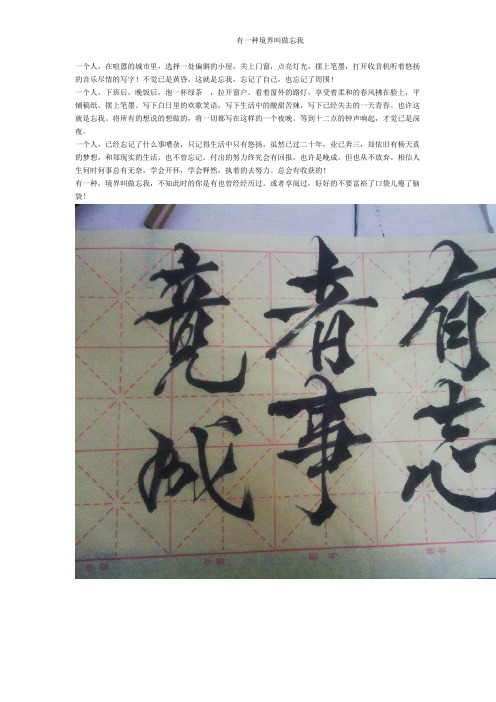 有一种境界叫做忘我
一个人，在喧嚣的城市里，选择一处偏僻的小屋。关上门窗，点亮灯光，摆上笔墨，打开收音机听着悠扬
的音乐尽情的写字！不觉已是黄昏，这就是忘我，忘记了自己，也忘记了周围！
一个人，下班后，晚饭后，泡一杯绿茶 ，拉开窗户。看着窗外的路灯，享受着柔和的春风拂在脸上，平
铺稿纸，摆上笔墨。写下白日里的欢歌笑语，写下生活中的酸甜苦辣，写下已经失去的一天青春。也许这
就是忘我。将所有的想说的想做的，将一切都写在这样的一个夜晚。等到十二点的钟声响起，才觉已是深
夜。
一个人，已经忘记了什么事嘈杂，只记得生活中只有悠扬。虽然已过二十年，业已奔三，却依旧有杨天真
的梦想，和郑现实的生活。也不曾忘记，付出的努力终究会有回报，也许是晚成，但也从不放弃。相信人
生何时何事总有无奈，学会开怀，学会释然，执着的去努力。总会有收获的！
有一种，境界叫做忘我，不知此时的你是有也曾经经历过。或者享阅过，好好的不要富裕了口袋儿瘪了脑
袋！
有志
者事
竟成
姓名
学校